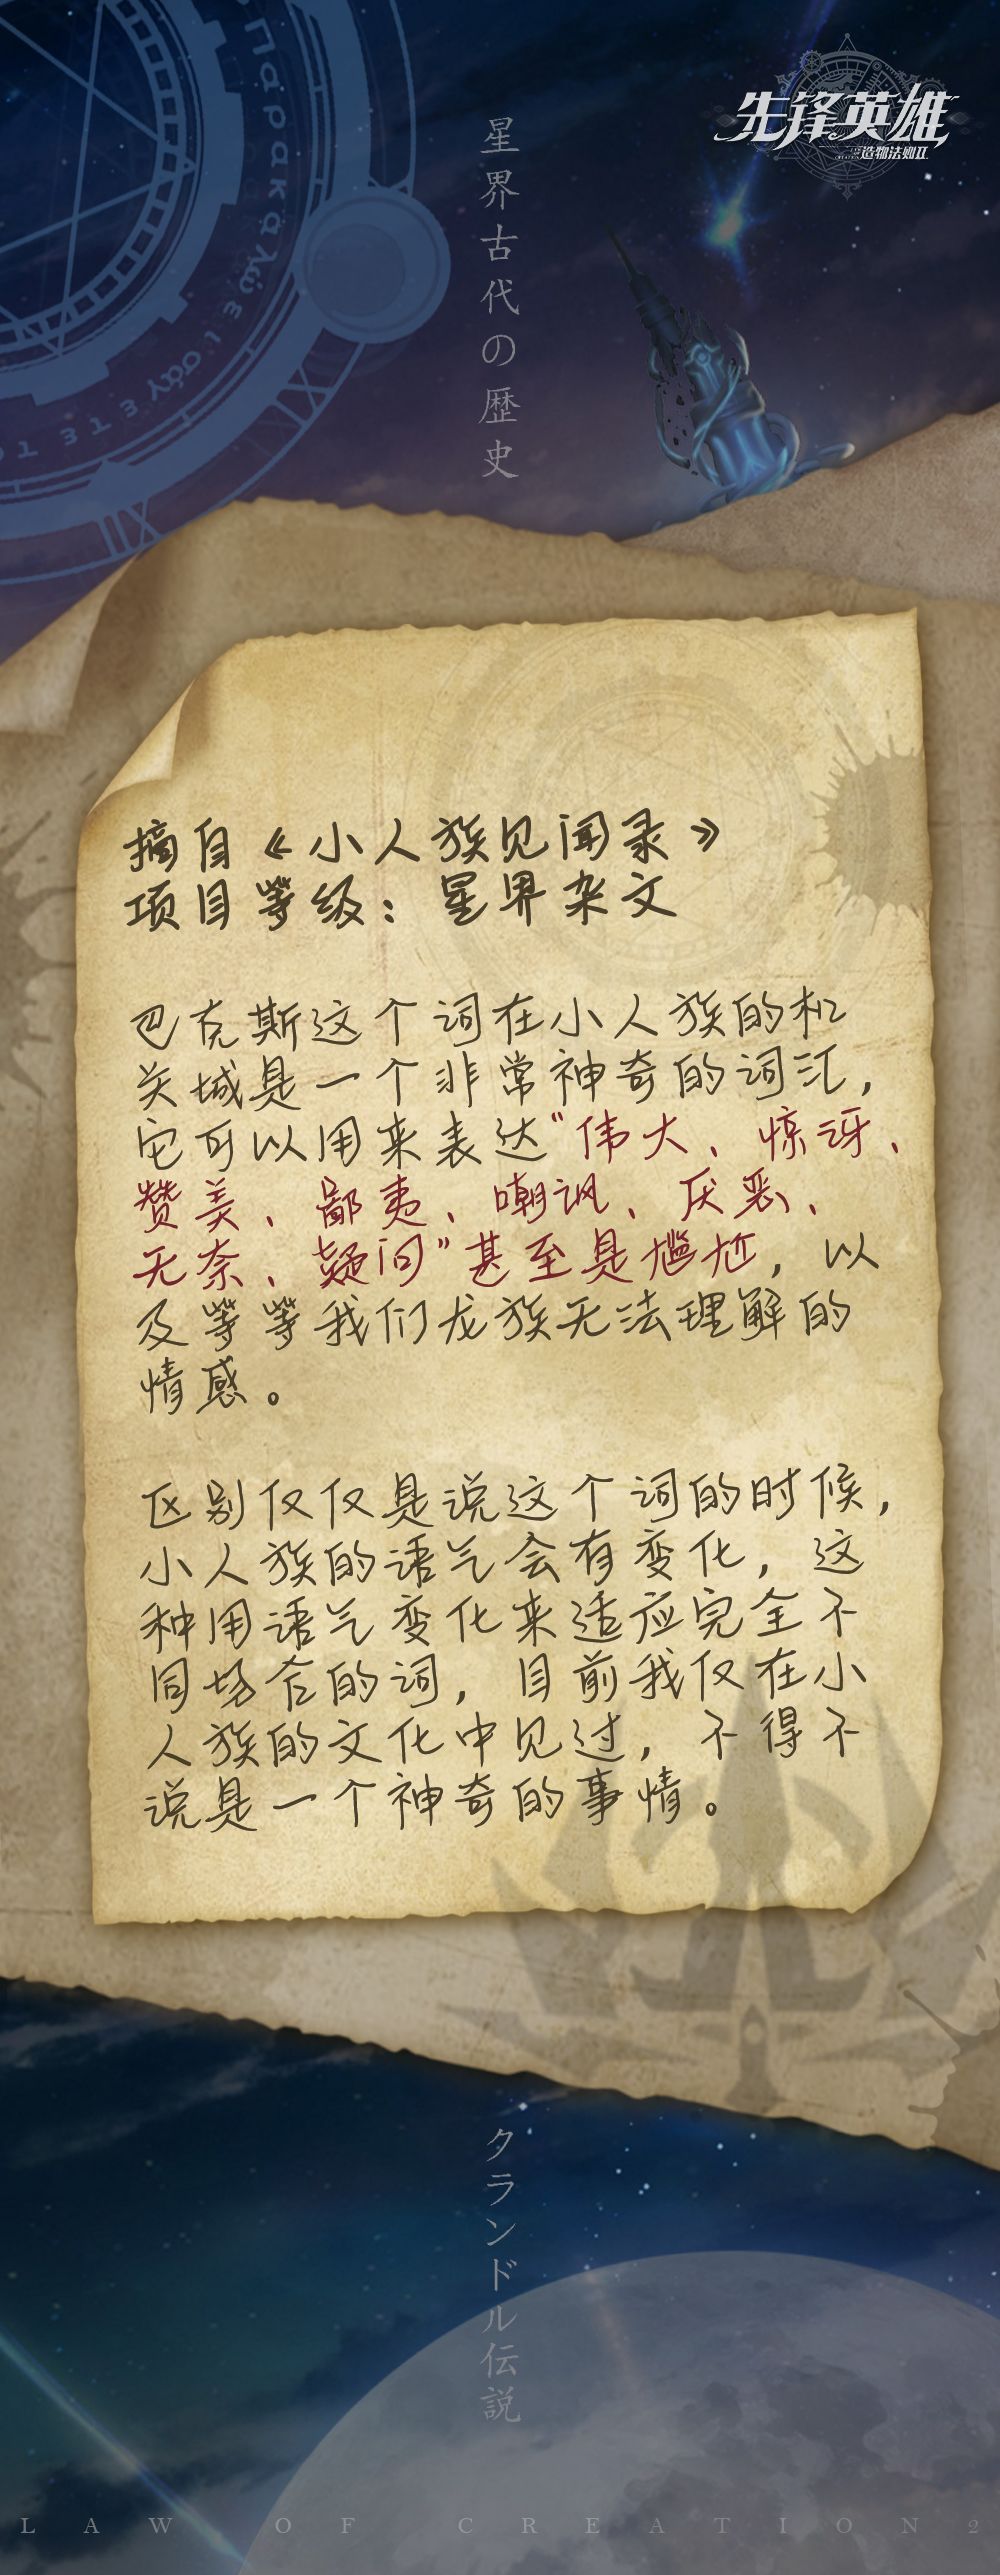 先锋英雄
造物法则II
星界古代の歴史
摘自《小人族见闻录》
项目等级：星界杂文
巴克斯这个词在小人族的机
关城是一个非常神奇的词汇，
它可以用来表达“伟大、惊讶、
赞美、鄙夷、嘲讽、厌恶、
无奈、疑问”甚至是尴尬，以
及等等我们龙族无法理解的
情感。
区别仅仅是说这个词的时候，
小人族的语气会有变化，这
种用语气变化来适应完全不
同场合的词，目前我仅在小
人族的文化中见过，不得不
说是一个神奇的事情。
クランドル伝説
LAW OF CREATION2